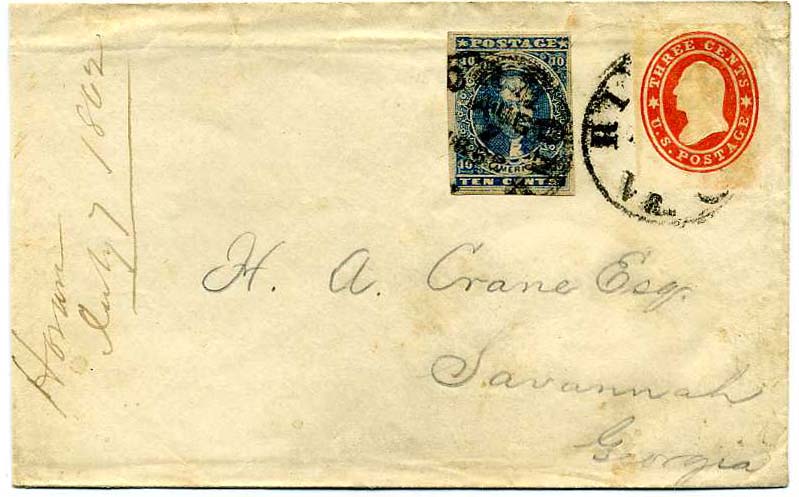 POSTAGE
10 10
AUG
10 10
AMERICA
TEN CENTS
THREE CENTS
U.S. POSTAGE
VA
H. A. Crane Esq.
Savannah
Georgia
July 7 1862